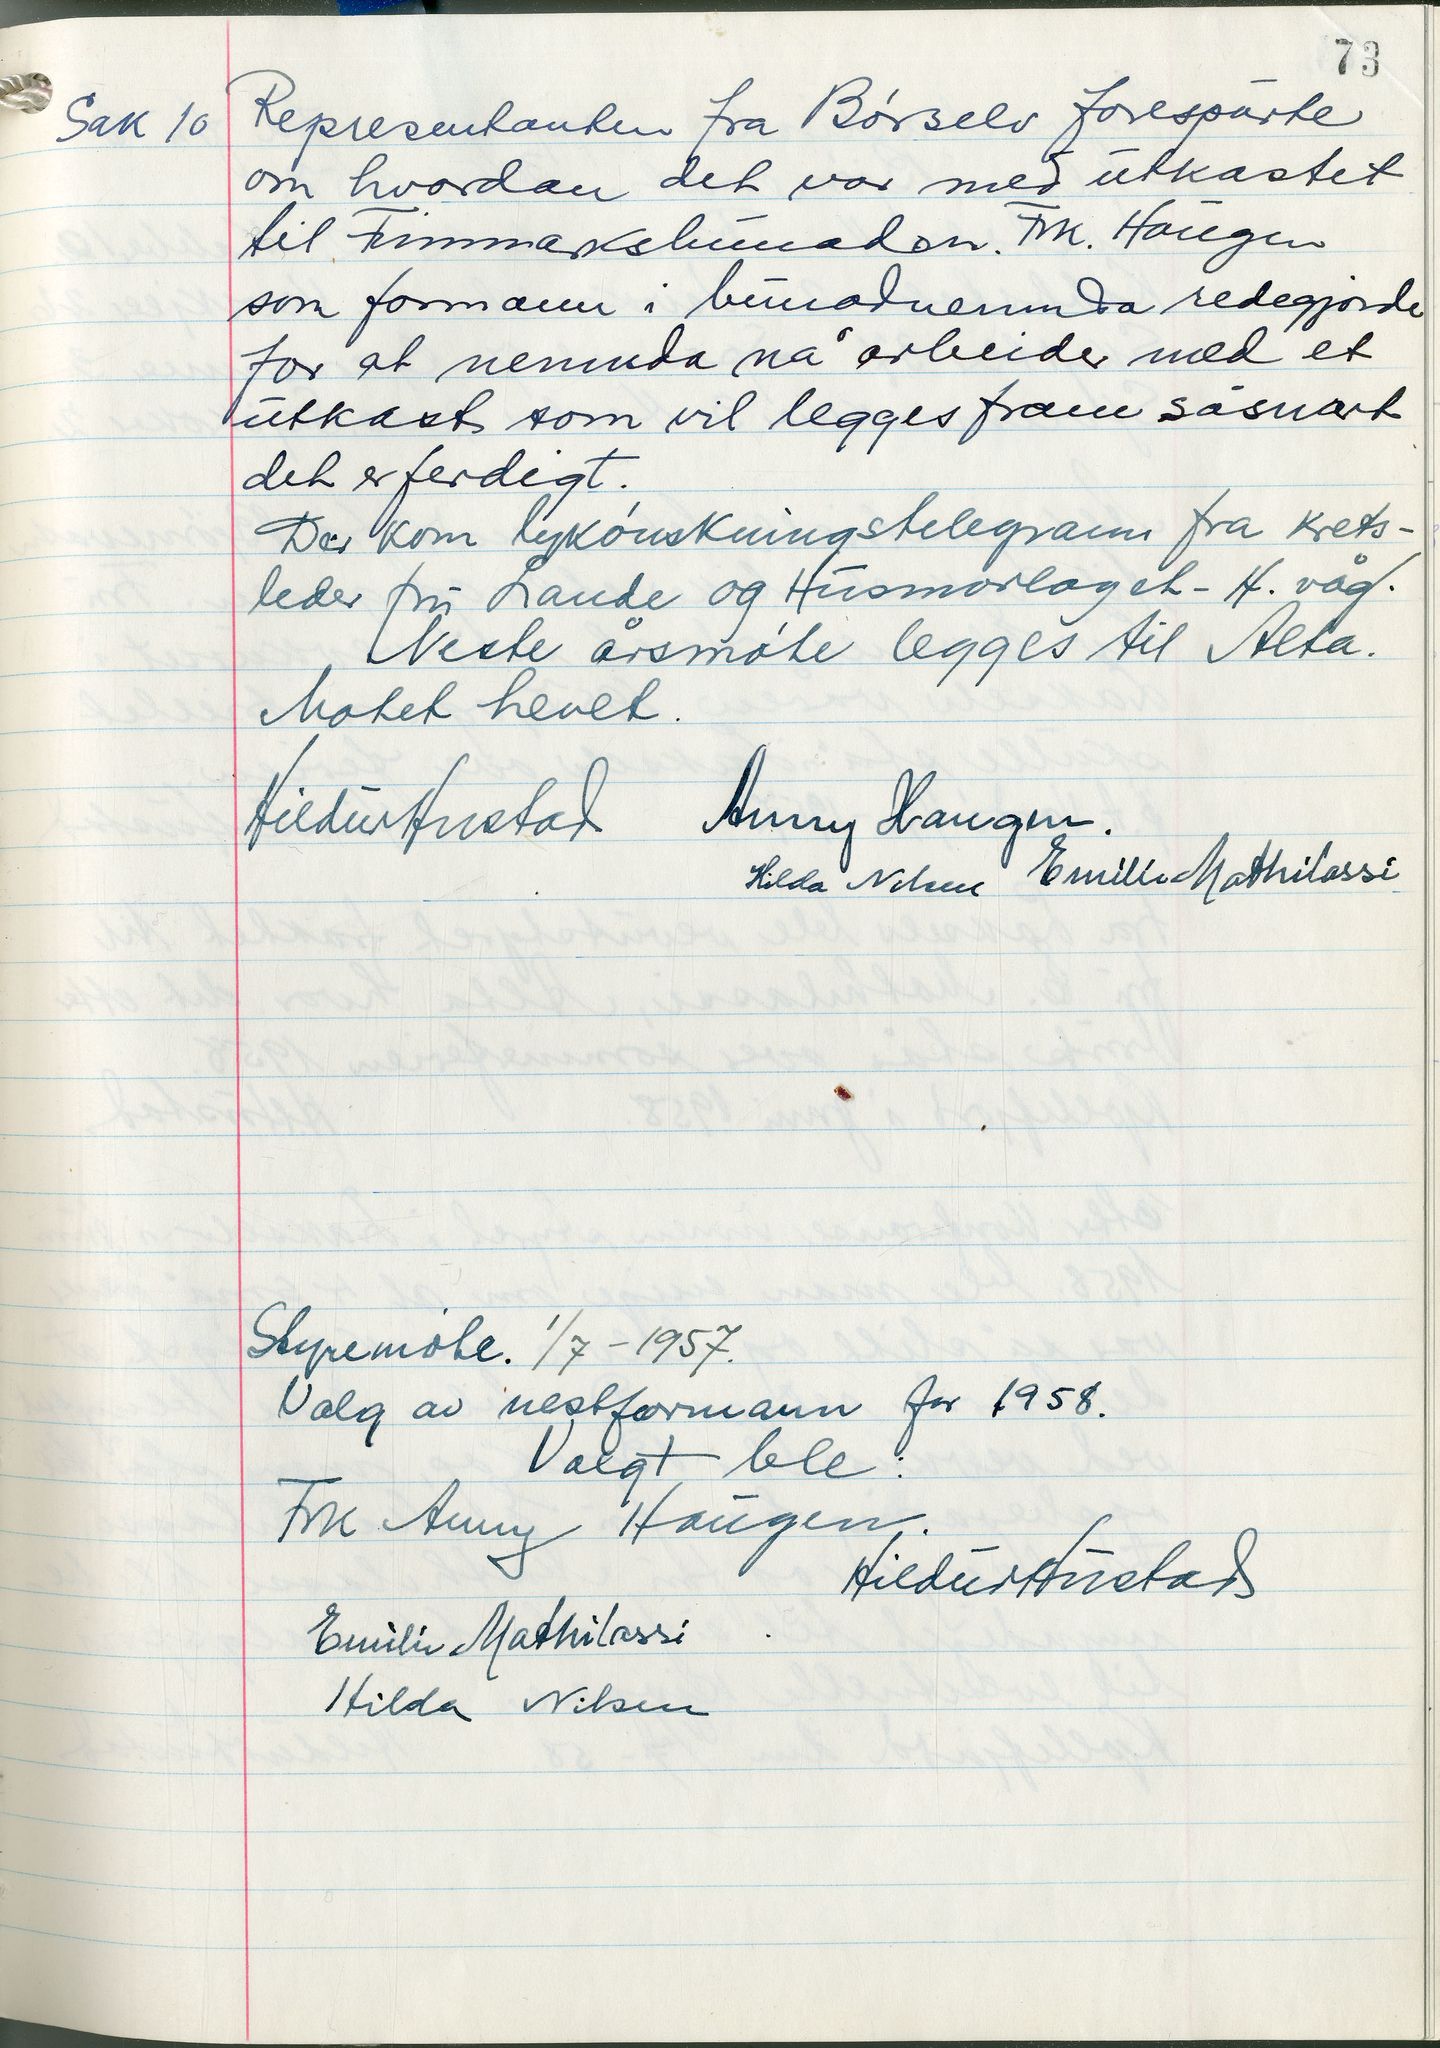 73
Sak 10 Representanten fra Børselv forespurte
om hvordan det var med utkastet
til Finnmarksbunaden. Frk. Haugen
som formann i bunadnemnda redegjorde
for at nemnda nå arbeider med et
utkast som vil legges fram såsnart
det er ferdigt.
Der kom lykønskningstelegram fra krets-
leder fru Lande og Husmorlaget - H. våg.
Neste årsmøte legges til Alta.
Møtet hevet.
Hildur Hustad Anny Haugen.
Hilda Nilsen Emilie Mathilassi
Styremøte. 1/7 - 1957.
Valg av nestformann for 1958.
Valgt ble:
Frk Anny Haugen.
Hildur Hustad
Emilie Mathilassi
Hilda Nilsen